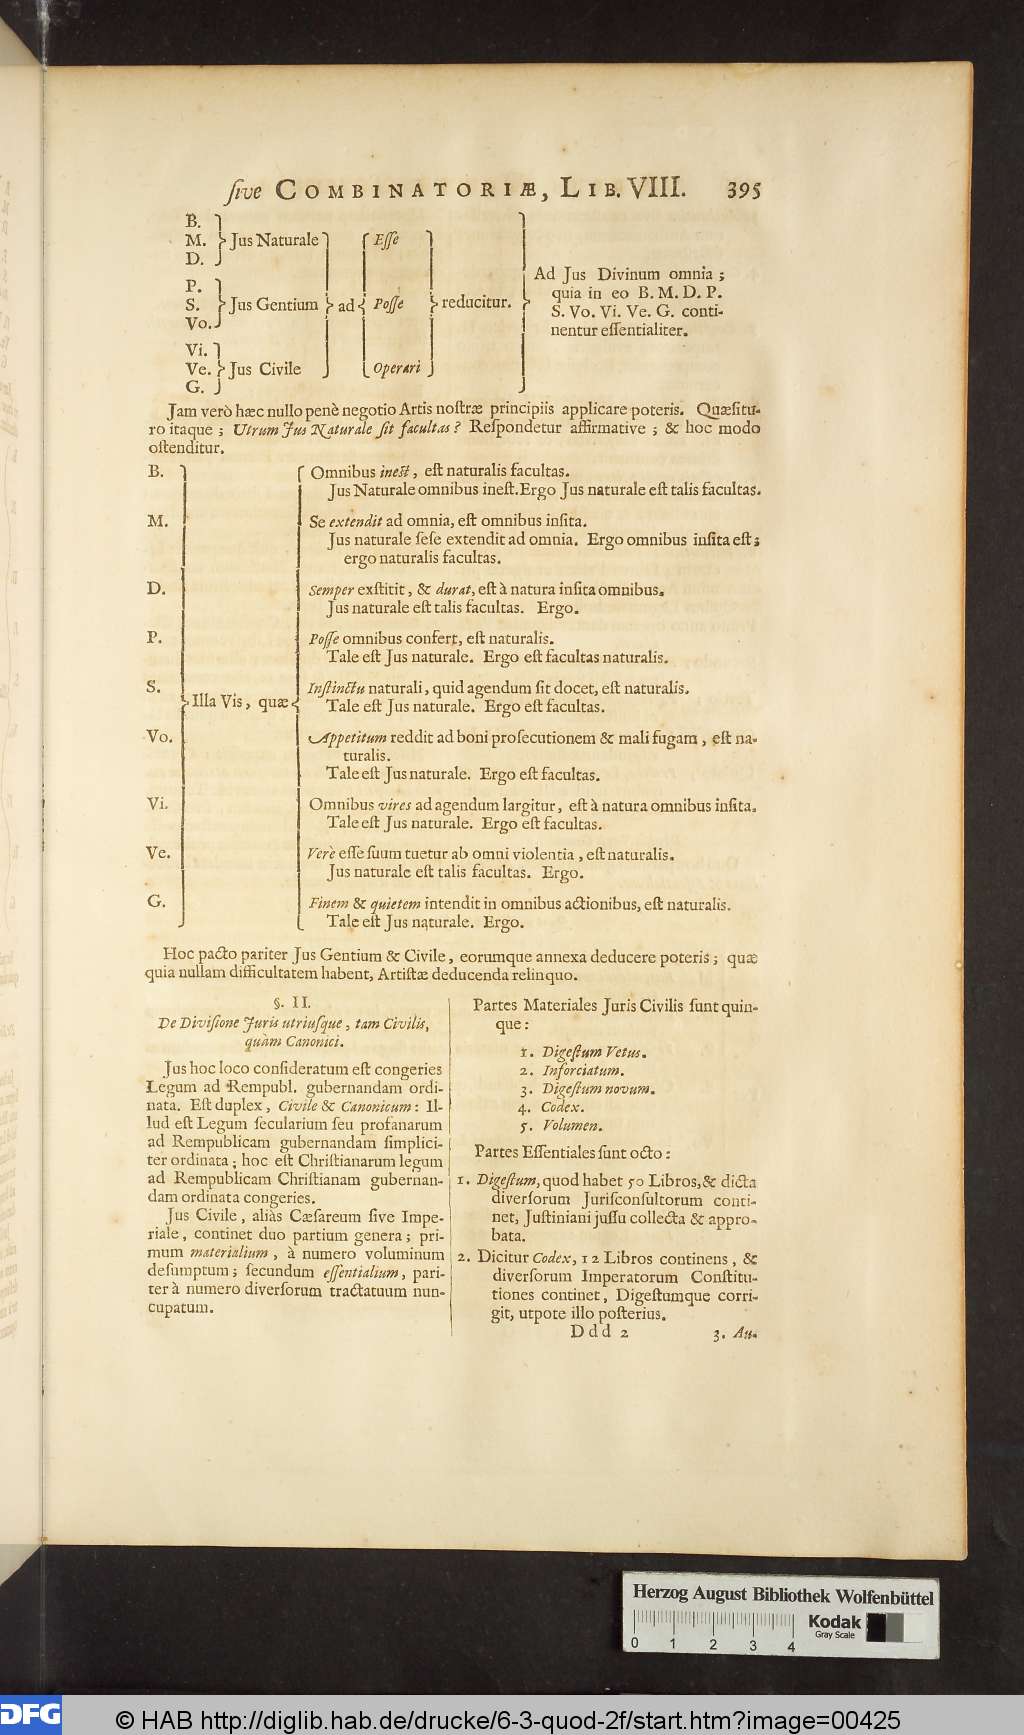 ſive COMBINATORIÆ, LIB. VIII. 395
B.
M. Jus Naturale Eſſe
D.
Ad Jus Divinum omnia ;
quia in eo B. M. D. P.
S. Vo. Vi. Ve. G. conti-
nentur eſſentialiter.
P.
S. Jus Gentium ad Poſſe reducitur.
Vo.
Vi.
Ve. Jus Civile Operari
G.
Jam verò hæc nullo penè negotio Artis noſtræ principiis applicare poteris. Quæſitu-
ro itaque ; Utrum Jus Naturale ſit facultas ? Reſpondetur affirmative ; & hoc modo
oſtenditur.
B. Omnibus ineſt, eſt naturalis facultas.
Jus Naturale omnibus ineſt. Ergo Jus naturale eſt talis facultas.
M. Se extendit ad omnia, eſt omnibus inſita.
Jus naturale ſeſe extendit ad omnia. Ergo omnibus inſita eſt ;
ergo naturalis facultas.
D. Semper exſtitit, & durat, eſt à natura inſita omnibus.
Jus naturale eſt talis facultas. Ergo.
P. Poſſe omnibus confert, eſt naturalis.
Tale eſt Jus naturale. Ergo eſt facultas naturalis.
S. Inſtinctu naturali, quid agendum ſit docet, eſt naturalis.
Illa Vis, quæ Tale eſt Jus naturale. Ergo eſt facultas.
Vo. Appetitum reddit ad boni proſecutionem & mali fugam, eſt na-
turalis.
Tale eſt Jus naturale. Ergo eſt facultas.
Vi. Omnibus vires ad agendum largitur, eſt à natura omnibus inſita.
Tale eſt Jus naturale. Ergo eſt facultas.
Ve. Verè eſſe ſuum tuetur ab omni violentia, eſt naturalis.
Jus naturale eſt talis facultas. Ergo.
G. Finem & quietem intendit in omnibus actionibus, eſt naturalis.
Tale eſt Jus naturale. Ergo.
Hoc pacto pariter Jus Gentium & Civile, eorumque annexa deducere poteris ; quæ
quia nullam difficultatem habent, Artiſtæ deducenda relinquo.
§. II.
De Diviſione Juris utriuſque, tam Civilis,
quàm Canonici.
Jus hoc loco conſideratum eſt congeries
Legum ad Rempubl. gubernandam ordi-
nata. Eſt duplex, Civile & Canonicum : Il-
lud eſt Legum ſecularium ſeu profanarum
ad Rempublicam gubernandam ſimplici-
ter ordinata ; hoc eſt Chriſtianarum legum
ad Rempublicam Chriſtianam gubernan-
dam ordinata congeries.
Jus Civile, aliàs Cæſareum ſive Impe-
riale, continet duo partium genera ; pri-
mum materialium, à numero voluminum
deſumptum ; ſecundum eſſentialium, pari-
ter à numero diverſorum tractatuum nun-
cupatum.
Partes Materiales Juris Civilis ſunt quin-
que :
1. Digeſtum Vetus.
2. Inforciatum.
3. Digeſtum novum.
4. Codex.
5. Volumen.
Partes Eſſentiales ſunt octo :
1. Digeſtum, quod habet 50 Libros, & dicta
diverſorum Juriſconſultorum conti-
net, Juſtiniani juſſu collecta & appro-
bata.
2. Dicitur Codex, 12 Libros continens, &
diverſorum Imperatorum Conſtitu-
tiones continet, Digeſtumque corri-
git, utpote illo poſterius.
Ddd 2 3. Au-
Herzog August Bibliothek Wolfenbüttel
Kodak
Gray Scale
0 1 2 3 4
DFG
© HAB http://diglib.hab.de/drucke/6-3-quod-2f/start.htm?image=00425